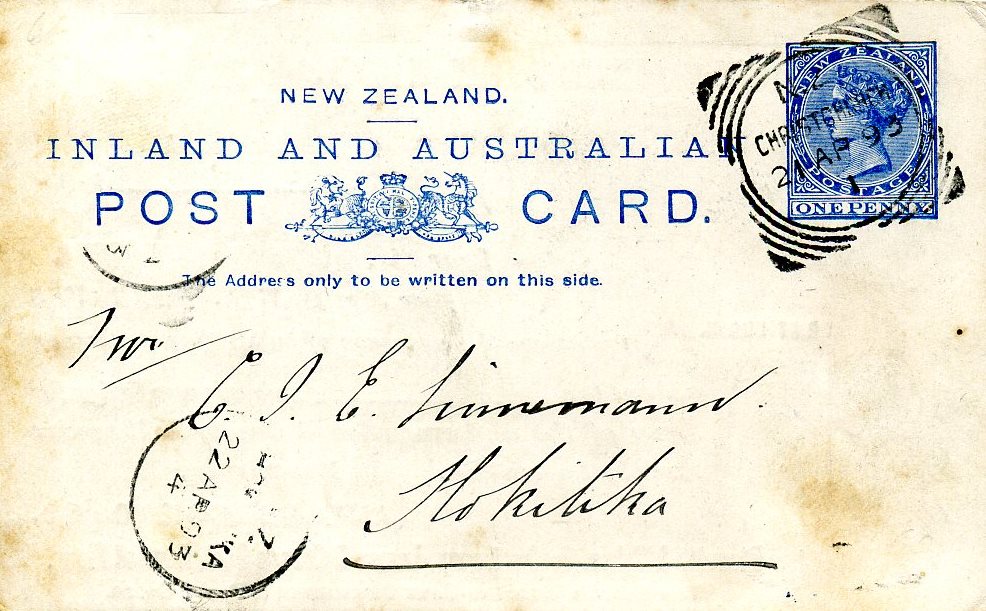 NEW ZEALAND.
INLAND AND AUSTRALIAN
POST CARD.
The Address only to be written on this side.
NEW ZEALAND
POSTAGE
ONE PENNY
CHRISTCHURCH
21 AP 93
1
Mr.
C. J. E. Linnemann.
Hokitika
22 AP 93
4